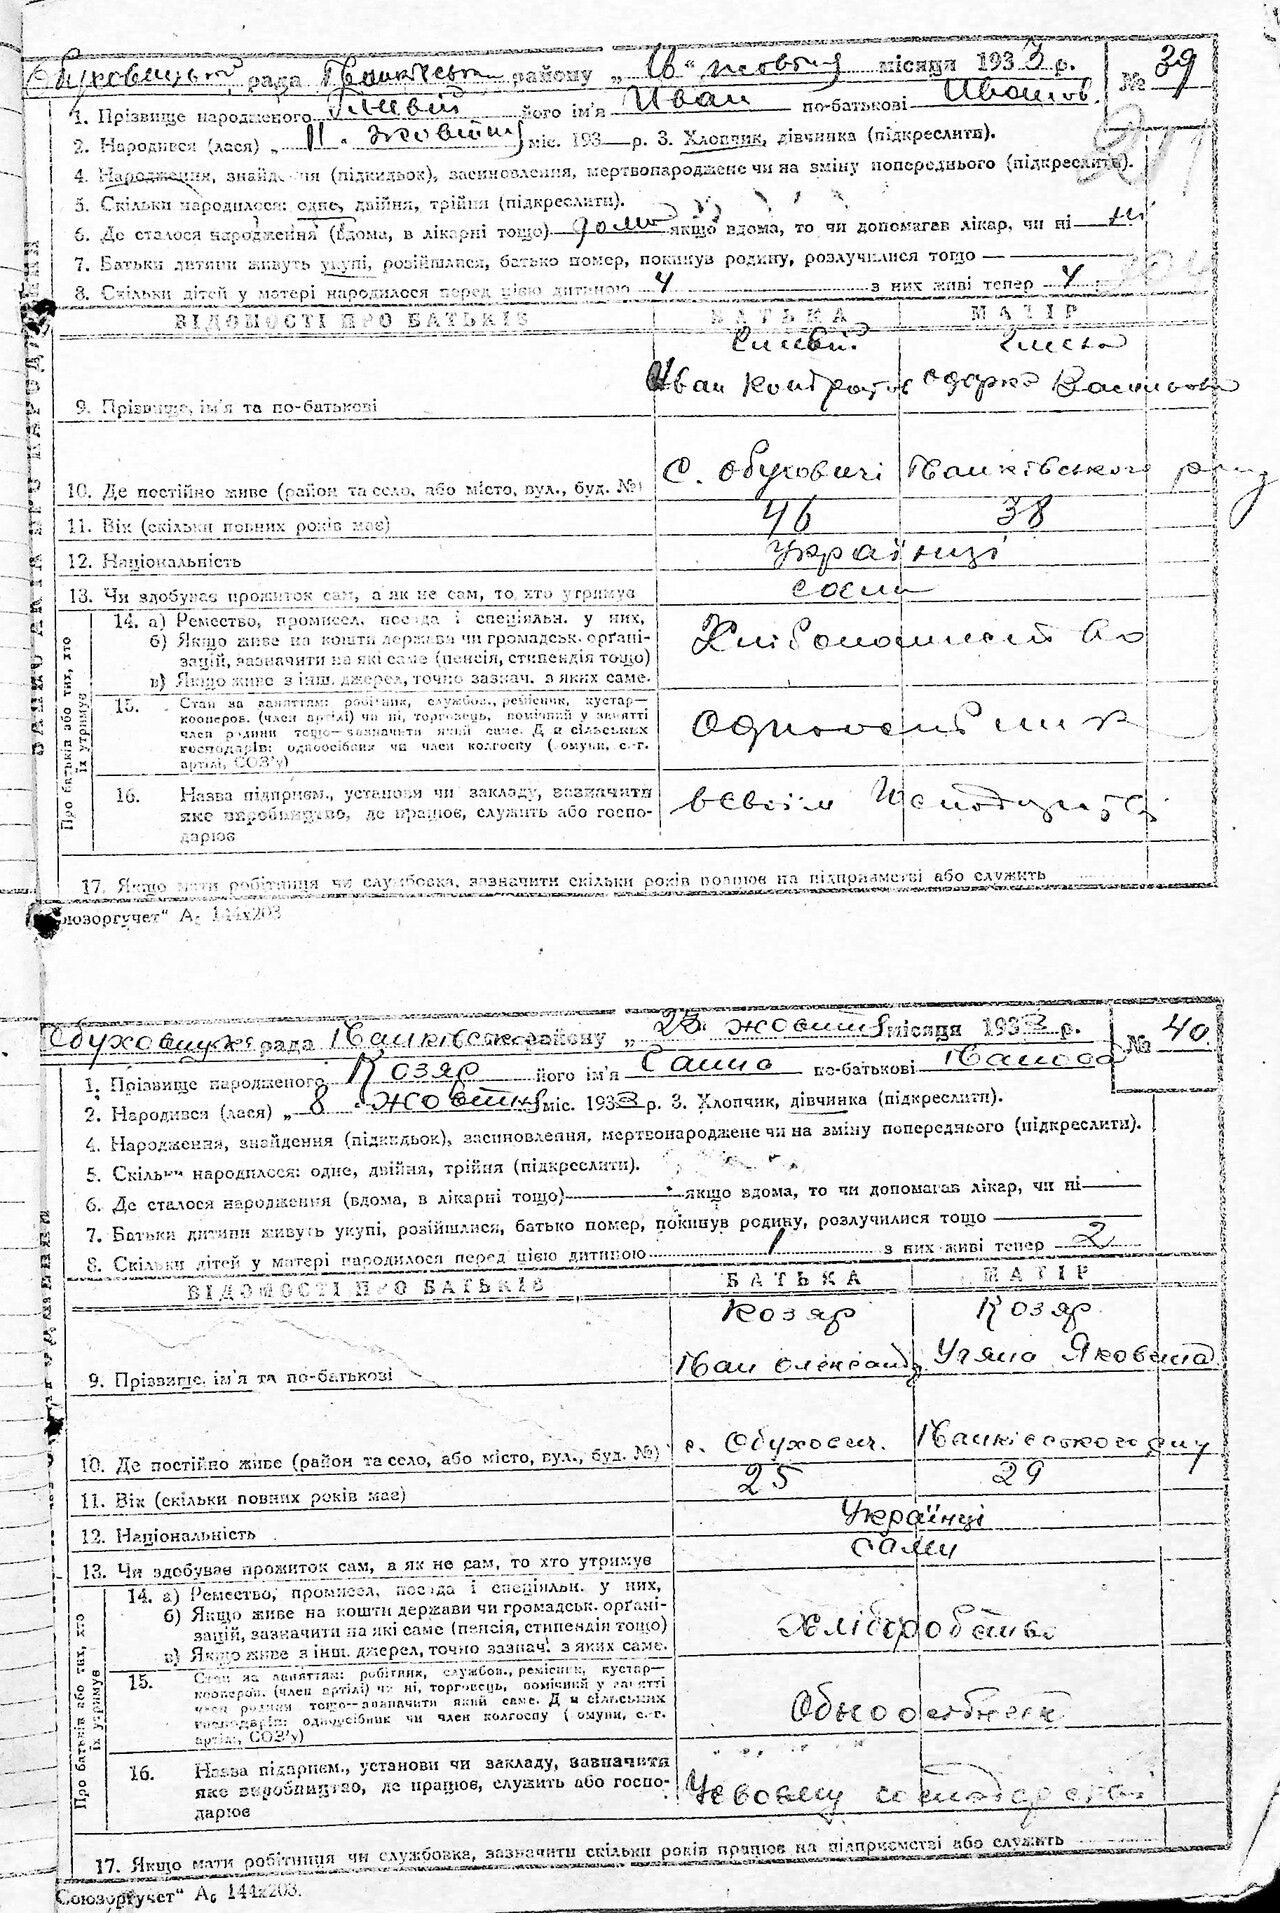 рада Іванківськ району „ " жовтня місяця 1933 р. № 39
1. Прізвище народженого його ім'я Иван по-батькові Иванов.
2. Народився (лася) „ 11 . жовтня міс. 193 р. 3. Хлопчик, дівчинка (підкреслити).
4. Народження, знайдення (підкидьок), засиновлення, мертвонароджене чи на зміну попереднього (підкреслити).
5. Скільки народилося: одне, двійня, трійня (підкреслити).
6. Де сталося народження (вдома, в лікарні тощо) дома якщо вдома, то чи допомагав лікар, чи ні ні
7. Батьки дитини живуть укупі, розійшлися, батько помер, покинув родину, розлучилися тощо —
8. Скільки дітей у матері народилося перед цією дитиною 4 з них живі тепер 4
ВІДОМОСТІ ПРО БАТЬКІВ БАТЬКА МАТІР
Иван Кондратов Одарка
9. Прізвище, ім'я та по-батькові
с. Обуховичі Іванківського рну
10. Де постійно живе (район та село, або місто, вул., буд. №)
11. Вік (скільки повних років має) 46 38
12. Національність Українці
13. Чи здобуває прожиток сам, а як не сам, то хто утримує сами
Про батьків або тих, хто їх утримує
14. а) Ремество, промисел, посада і спеціяльн. у них,
б) Якщо живе на кошти держави чи громадськ. орґані-
зацій, зазначити на які саме (пенсія, стипендія тощо)
в) Якщо живе з інш. джерел, точно зазнач. з яких саме.
15. Стан за заняттям: робітник, службов., ремісник, кустар—
кооперов. (член артілі) чи ні, торговець, помічний у занятті
член родини тощо—зазначити який саме. Для сільських
господарів: одноосібник чи член колгоспу (комуни, с.-г.
артілі, СОЗ'у)
16. Назва підприєм., установи чи закладу, зазначити
яке виробництво, де працює, служить або госпо-
дарює
17. Якщо мати робітниця чи службовка, зазначити скільки років працює на підприємстві або служить
Союзоргучет" А₆ 144х203
рада Іванківськ району „ 23 жовтня місяця 1933 р. № 40.
1. Прізвище народженого Козяр його ім'я Ганна по-батькові Іванова
2. Народився (лася) „ 8 жовтня міс. 1933 р. 3. Хлопчик, дівчинка (підкреслити).
4. Народження, знайдення (підкидьок), засиновлення, мертвонароджене чи на зміну попереднього (підкреслити).
5. Скільки народилося: одне, двійня, трійня (підкреслити).
6. Де сталося народження (вдома, в лікарні тощо) якщо вдома, то чи допомагав лікар, чи ні
7. Батьки дитини живуть укупі, розійшлися, батько помер, покинув родину, розлучилися тощо
8. Скільки дітей у матері народилося перед цією дитиною 1 з них живі тепер 2
ВІДОМОСТІ ПРО БАТЬКІВ БАТЬКА МАТІР
Козяр Козяр
Іван Олександ Уляна Яковівна
9. Прізвище, ім'я та по-батькові
с. Обухович. Іванківського рну
10. Де постійно живе (район та село, або місто, вул., буд. №)
11. Вік (скільки повних років має) 25 29
12. Національність Українці
13. Чи здобуває прожиток сам, а як не сам, то хто утримує сами
Про батьків або тих, хто їх утримує
14. а) Ремество, промисел, посада і спеціяльн. у них,
б) Якщо живе на кошти держави чи громадськ. орґані-
зацій, зазначити на які саме (пенсія, стипендія тощо)
в) Якщо живе з інш. джерел, точно зазнач. з яких саме.
Хліборобство
15. Стан за заняттям: робітник, службов., ремісник, кустар—
кооперов. (член артілі) чи ні, торговець, помічний у занятті
член родини тощо—зазначити який саме. Для сільських
господарів: одноосібник чи член колгоспу (комуни, с.-г.
артілі, СОЗ'у)
16. Назва підприєм., установи чи закладу, зазначити
яке виробництво, де працює, служить або госпо-
дарює
17. Якщо мати робітниця чи службовка, зазначити скільки років працює на підприємстві або служить
Союзоргучет" А₆ 144х203.